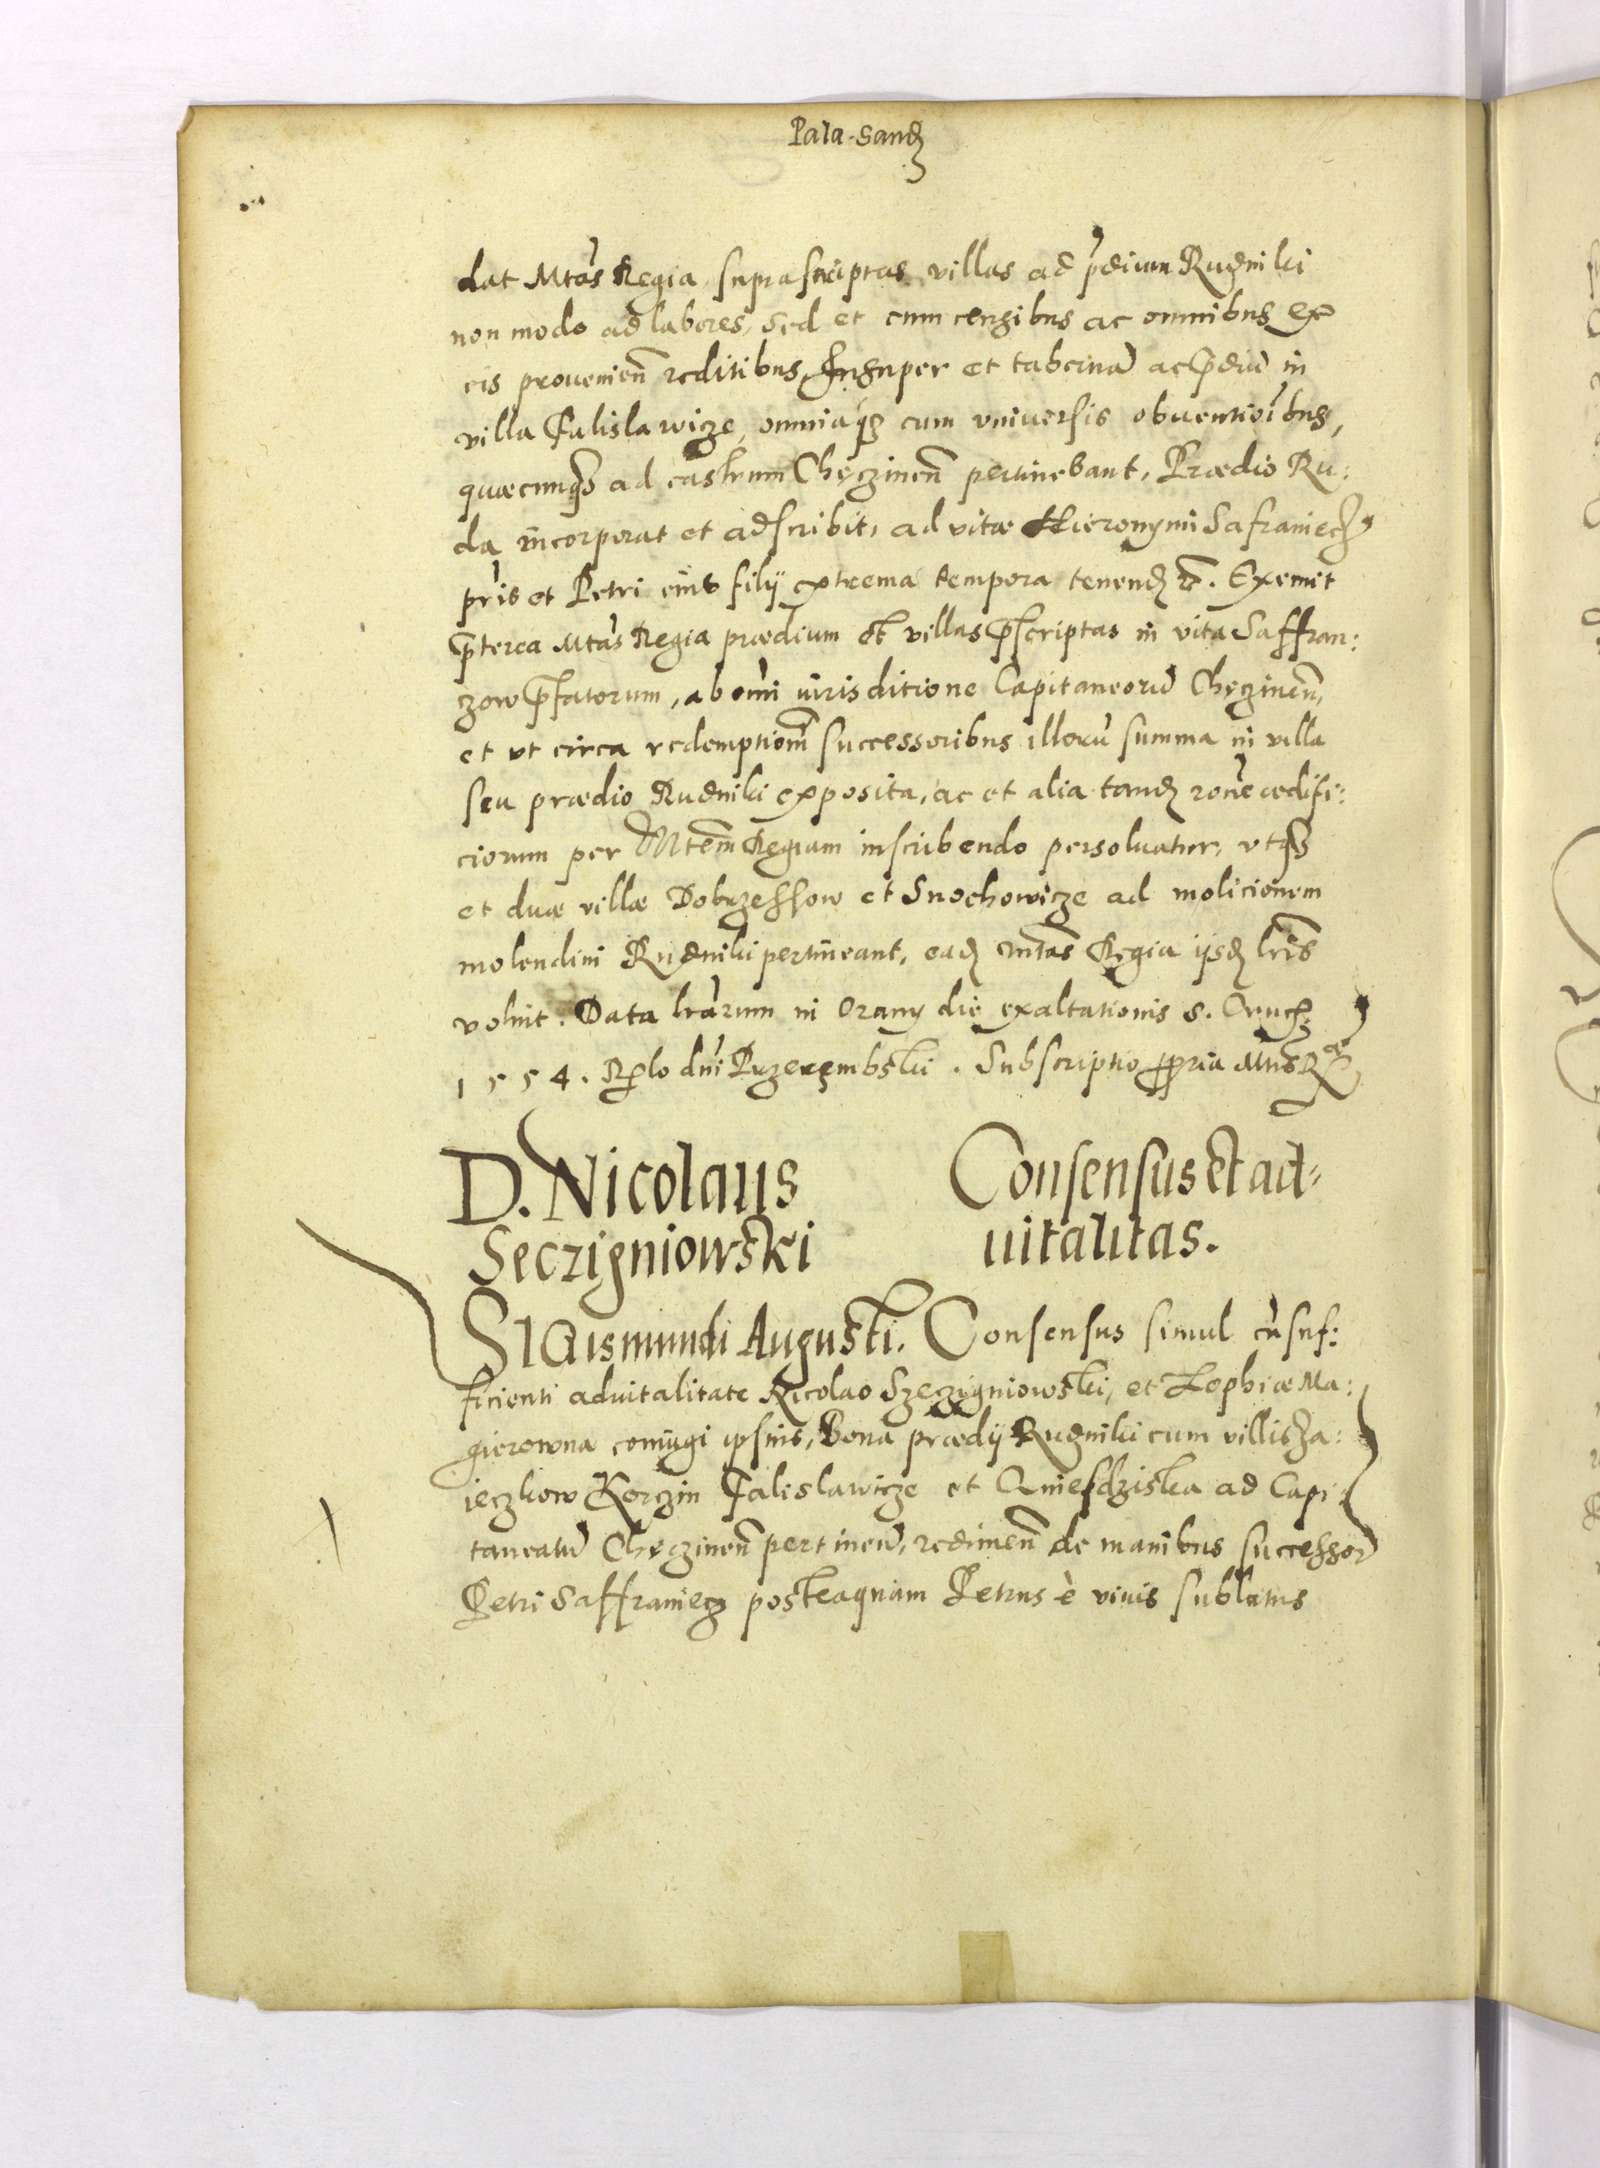 Pala. Sand
dat Mtas Regia suprascriptas villas ad prdium Rudniki
non modo ad labores, sed et cum censibus ac omnibus ex
eis provenien reditibus, Insuper et tabernā ac prdiū in
villa Falislawicze, omniaq cum vniuersis obuentioībus,
quæcunq ad castrum Chęczinen pertinebant, Prædio Ru:
da incorporat et adscribit, ad vitæ Hieronymi Safraniecz
pris et Petri eius filij extrema tempora tenend. Exemit
prterea Mtas Regia prædium et villas prscriptas in vita Saffran:
zow prfatorum, ab omi iurisditione Capitaneorū Chęczinen,
et vt circa redemptionē successoribus illorū summa in villa
seu prædio Rudniki exposita, ac et alia tand rone ædifi:
ciorum per Mtem Regiam inscribendo persoluatur, vtq
et duæ villæ Dobrzessow et Snochowicze ad molicionem
molendini Rudniki pertineant, ead Mtas Regia ijsd lris
voluit. Data lrarum in Orany die exaltationis S. Cruc
1554. Rlo dni Przerembski. Subscriptio ppria Mtis Ræ
D. Nicolaus
Seczigniowski
Consensus et ad-
uitalitas.
SIGismundi Augusti. Consensus simul cū suf:
ficienti aduitalitate Nicolao Szeczigniowski, et Zophiæ Ma:
gierowna coniugi ipsius, Bona prædij Rudniki cum villis Za:
ieczkow Korczin Falislawicze et Gniesdziska ad Capi:
taneatū Chęczinen pertinen, redimen de manibus successor
Petri Saffraniecz posteaquam Petrus è viuis sublatus